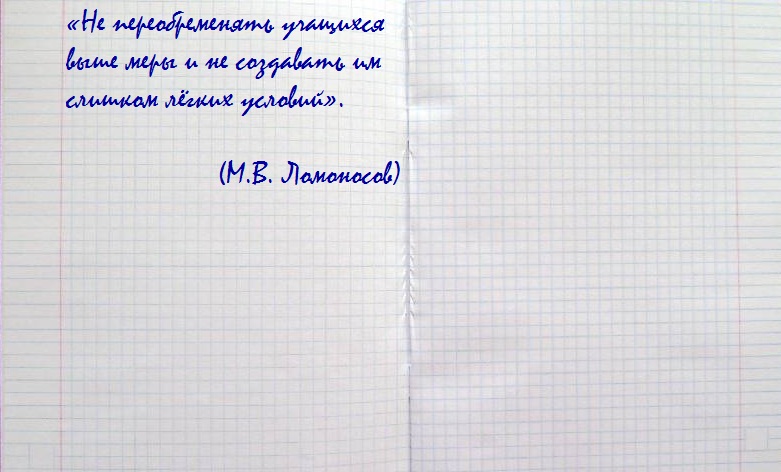 «Не переобременять учащихся
выше меры и не создавать им
слишком лёгких условий».
(М.В. Ломоносов)